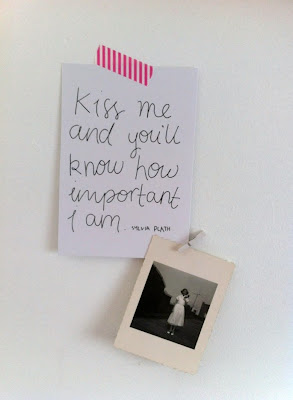 Kiss me
and you'll
know how
important
I am.
SYLVIA PLATH